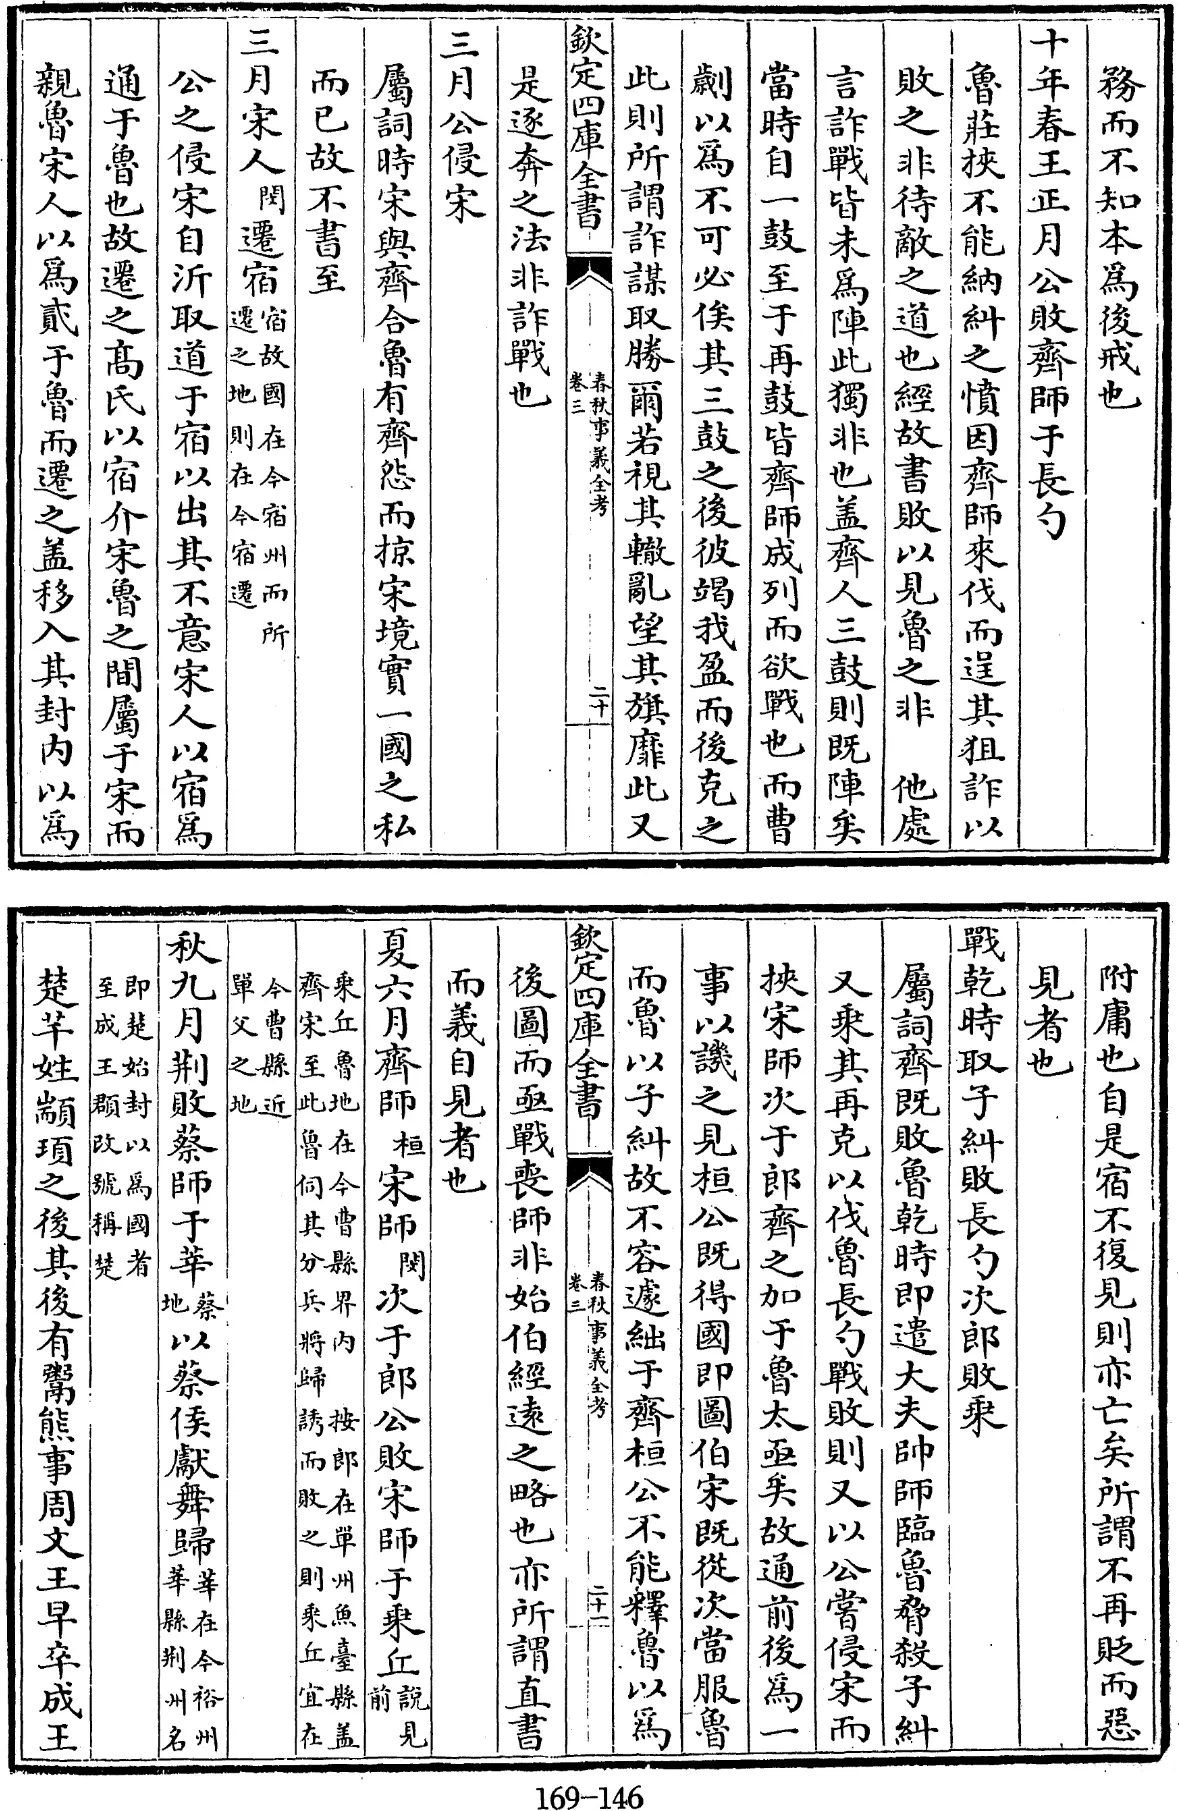 務而不知本爲後戒也
十年春王正月公敗齊師于長勺
魯莊挾不能納糾之憤因齊師來伐而逞其狙詐以
敗之非待敵之道也經故書敗以見魯之非　他處
言詐戰皆未爲陣此獨非也盖齊人三鼓則既陣矣
當時自一鼓至于再鼓皆齊師成列而欲戰也而曹
劌以爲不可必俟其三鼓之後彼竭我盈而後克之
此則所謂詐謀取勝爾若視其轍亂望其旗靡此又
欽定四庫全書
春秋事義全考
卷三
二十
是逐奔之法非詐戰也
三月公侵宋
屬詞時宋與齊合魯有齊怨而掠宋境實一國之私
而已故不書至
三月宋人閔遷宿宿故國在今宿州而所
遷之地則在今宿遷
公之侵宋自沂取道于宿以出其不意宋人以宿爲
通于魯也故遷之髙氏以宿介宋魯之間屬于宋而
親魯宋人以爲貳于魯而遷之盖移入其封内以爲
附庸也自是宿不復見則亦亡矣所謂不再貶而惡
見者也
戰乾時取子糾敗長勺次郎敗乗
屬詞齊既敗魯乾時即遣大夫帥師臨魯脅殺子糾
又乗其再克以伐魯長勺戰敗則又以公嘗侵宋而
挾宋師次于郎齊之加于魯太亟矣故通前後爲一
事以譏之見桓公既得國即圖伯宋既從次當服魯
而魯以子糾故不容遽絀于齊桓公不能釋魯以爲
欽定四庫全書
春秋事義全考
卷三
二十一
後圖而亟戰喪師非始伯經遠之略也亦所謂直書
而義自見者也
夏六月齊師桓宋師閔次于郎公敗宋師于乗丘說見
前
乗丘魯地在今曹縣界内　按郎在單州魚臺縣盖
齊宋至此魯伺其分兵將歸誘而敗之則乗丘宜在
今曹縣近
單父之地
秋九月荆敗蔡師于莘蔡
地以蔡侯獻舞歸莘在今裕州
莘縣荆州名
即楚始封以爲國者
至成王頵改號稱楚
楚芊姓顓頊之後其後有鬻熊事周文王早卒成王
169-146